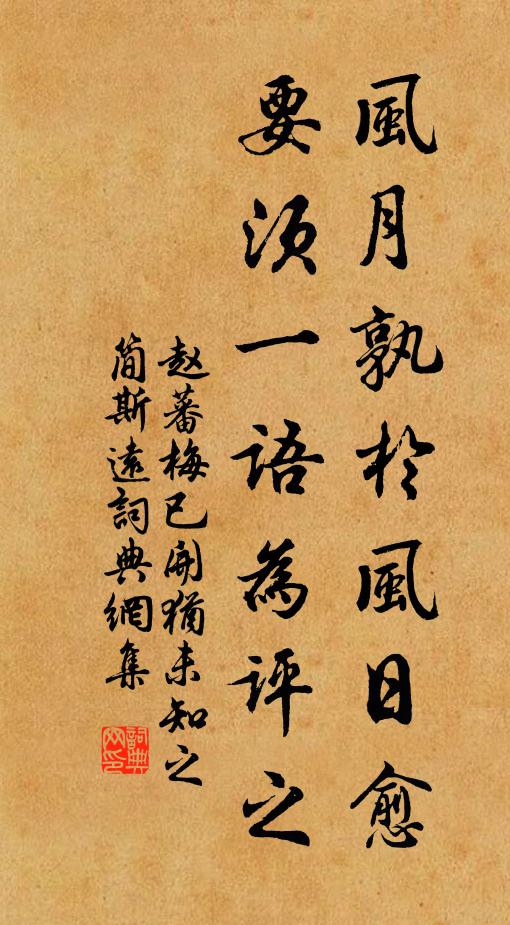 風月孰於風日愈
要須一語為評之
赵蕃梅已開猶未知之
簡斯遠詞典網集
詞典
网印